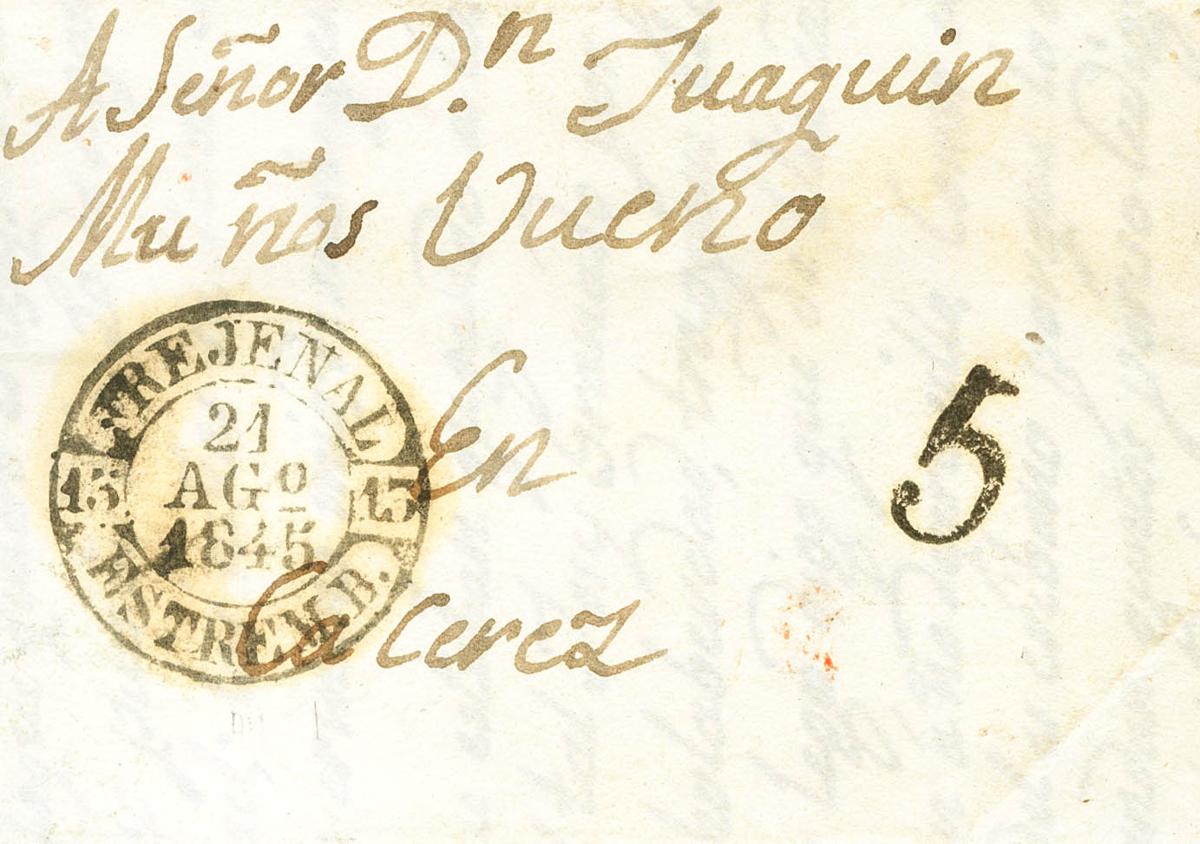 A Señor D.n Juaquin
Muños Vueno
FREJENAL
21
AGº
1845
15
15
ESTREM.B.
En
Cacerez
5